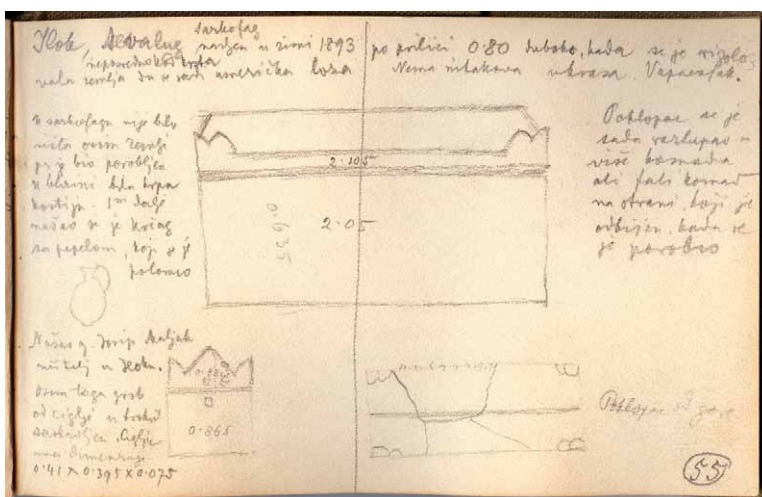 Ilok,
sarkofag
nadjen u zimi 1893 po prilici 0·80 duboko, kada se je rigolo-
neposredno
vala zemlja da se sadi američka loza Nema nikakova ukrasa. Vapnenjak.
U sarkofagu nije bilo
ništa osim zemlje
bio porobljen
u blizini bila
kostiju. 1m dalje
našao se je
sa pepelom, koji se je
polomio
Poklopac se je
sada razlupao u
više komada
ali fali komad
na strani, koji je
odbijen, kada se
je porobio
2·105
2·05
0·635
Našao g. Josip
učitelj u Iloku.
Osim toga grob
od ciglje u
sastavljen. Ciglje
imaju dimenzije
0·41 x 0·395 x 0·075
0·865
Poklopac od gore
55